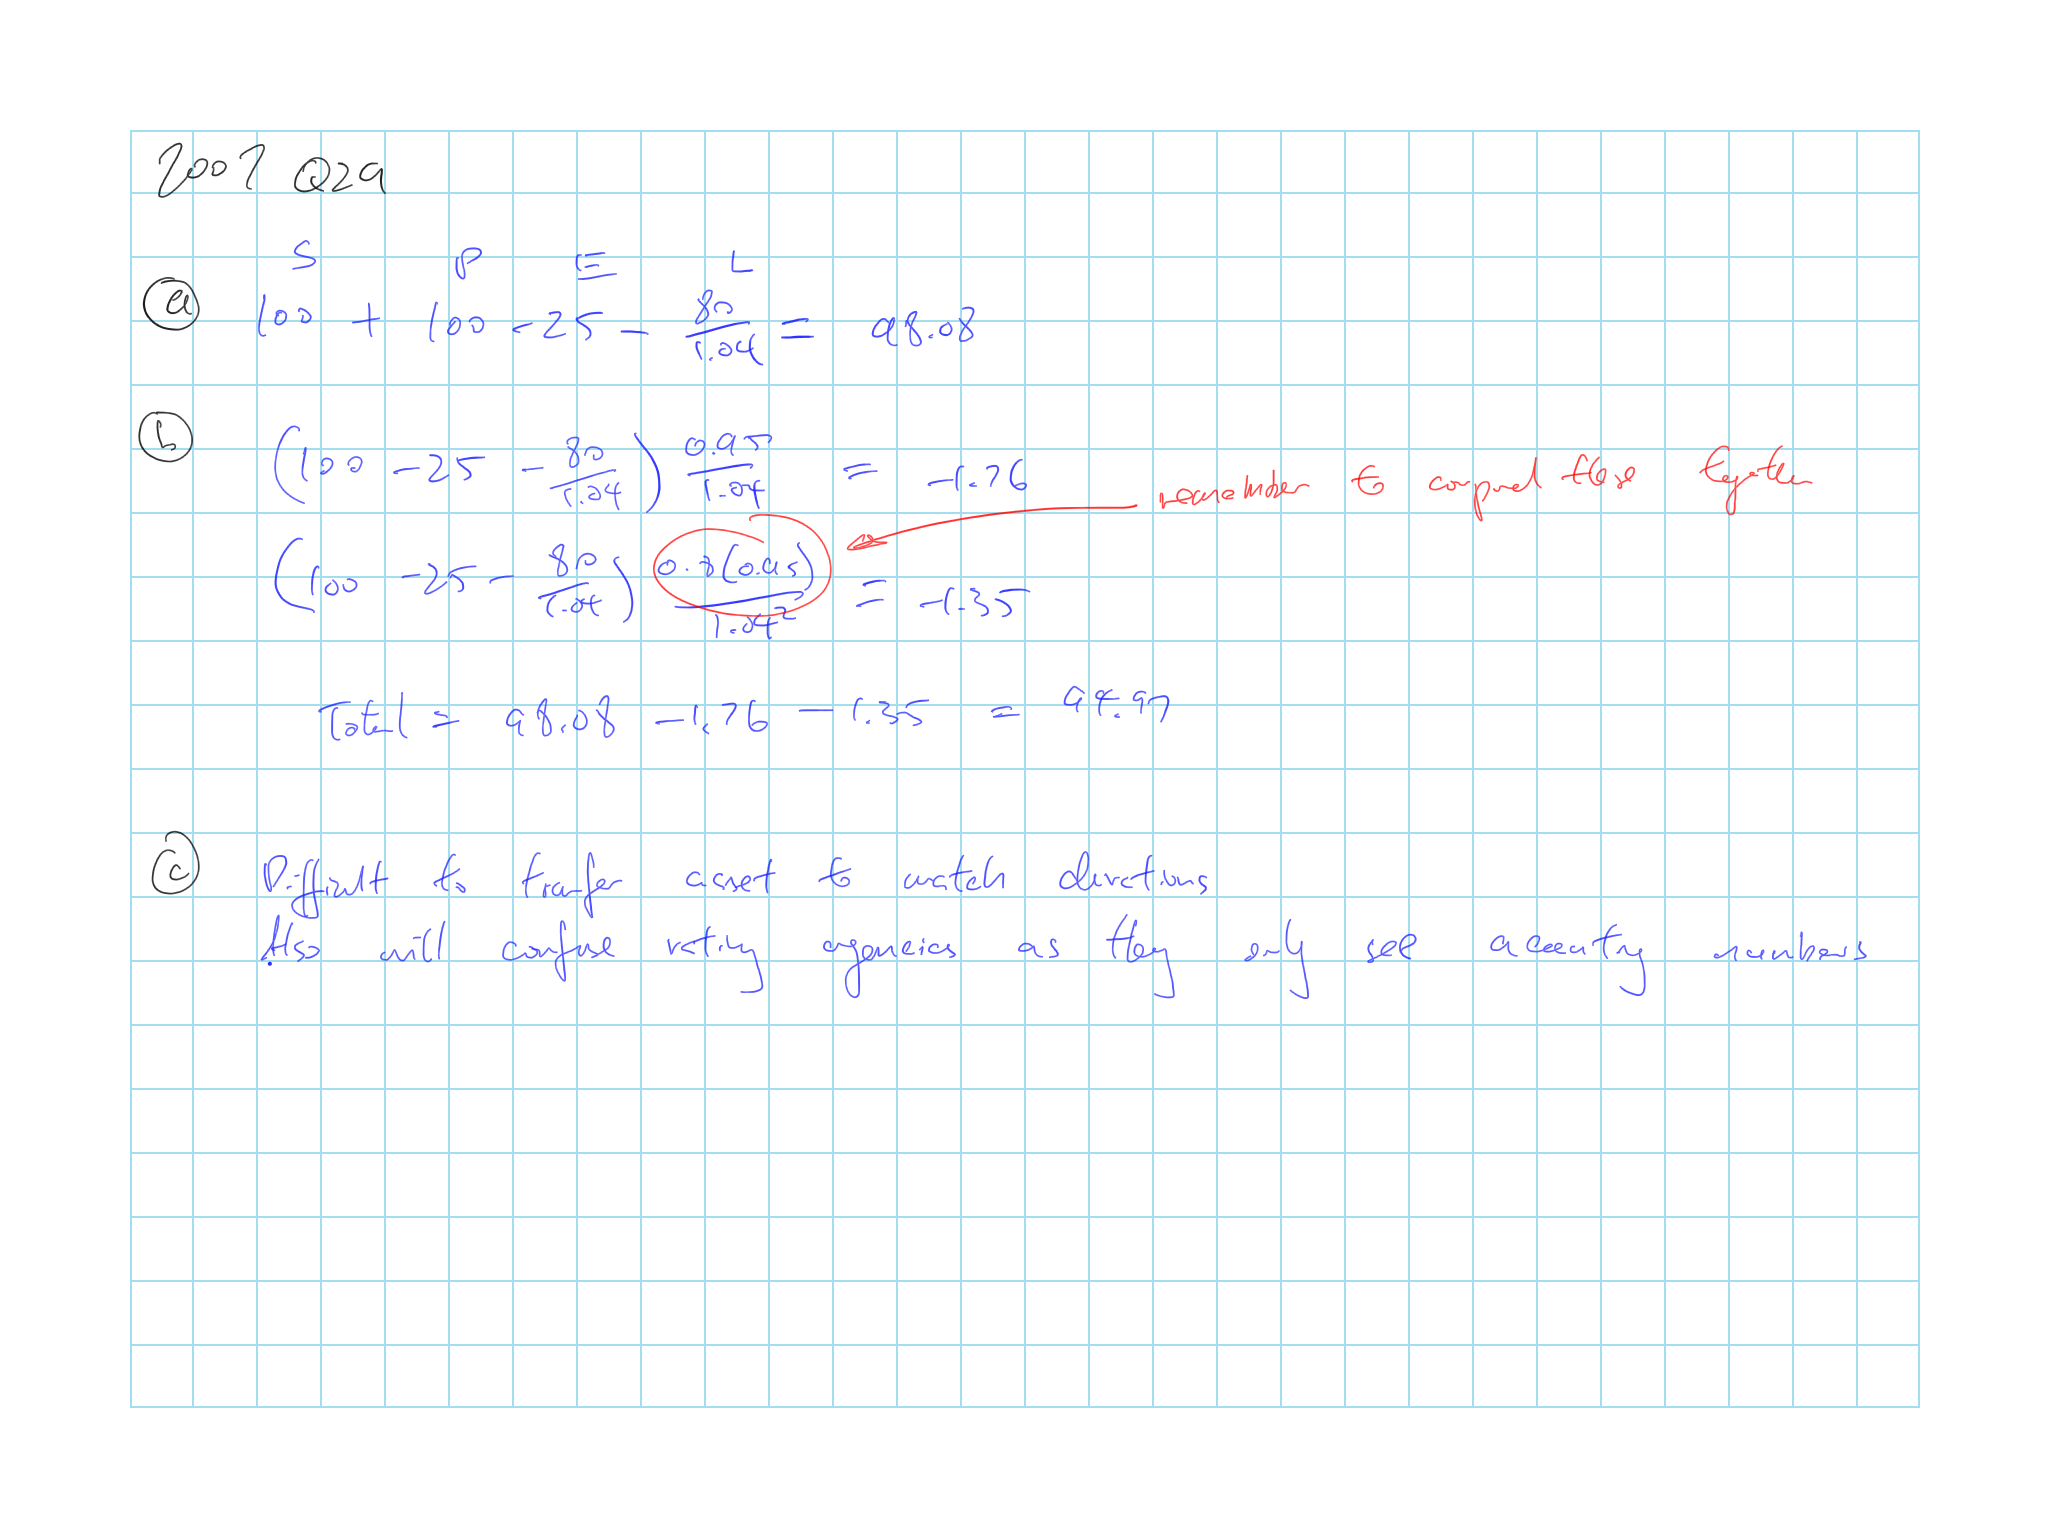 2007 Q29
S P E L
(a) 100 + 100 - 25 - 80/1.04 = 98.08
(b) (100 - 25 - 80/1.04) 0.95/1.04 = -1.76
remember to compound these together
(100 - 25 - 80/1.04) 0.8(0.95)/1.04² = -1.35
Total = 98.08 - 1.76 - 1.35 = 94.97
(c) Difficult to transfer asset to match durations
Also will confuse rating agencies as they only see accounting numbers